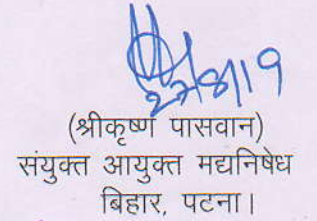 27/8/19
(श्रीकृष्ण पासवान)
संयुक्त आयुक्त मद्यनिषेध
बिहार, पटना।